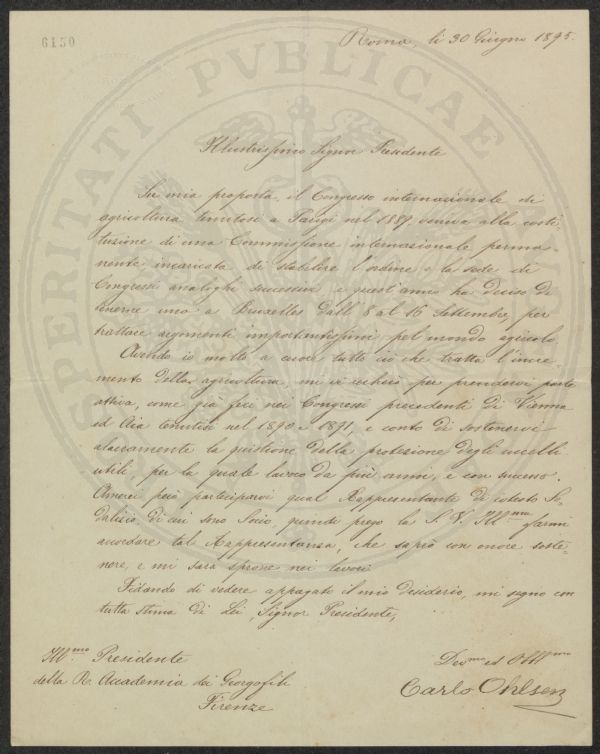 6150
Roma, li 30 Giugno 1895.
Illustrissimo Signor Presidente
Su mia proposta, il Congresso internazionale di
agricoltura tenutosi a Parigi nel 1889, veniva alla costi
tuzione di una Commissione internazionale perma-
nente incaricata di stabilire l'ordine e la sede di
Congressi analoghi successivi e quest'anno ha deciso di
tenerne uno a Bruxelles dall' 8 al 16 Settembre, per
trattare argomenti importantissimi pel mondo agricolo.
Avendo io molto a cuore tutto ciò che tratta l'incre-
mento della agricoltura, mi vi recherò per prendervi parte
attiva, come già feci nei Congressi precedenti di Vienna
ed Aia tenutisi nel 1890 e 1891, e conto di sostenervi
alacremente la quistione della protezione degli uccelli
utili per la quale lavoro da più anni, e con successo.
Amerei però parteciparvi qual Rappresentante di cotesto So-
dalizio, di cui sono Socio, quindi prego la S. V. Ill.ma farmi
accordare tal Rappresentanza, che saprò con onore soste-
nere, e mi sarà sprone nei lavori.
Fidando di vedere appagato il mio desiderio, mi segno con
tutta stima di Lei, Signor Presidente,
Ill.mo Presidente
della R. Accademia dei Georgofili
Firenze
Dev.mo ed Obbl.mo
Carlo Ohlsen
SPERITATI PVBLICAE